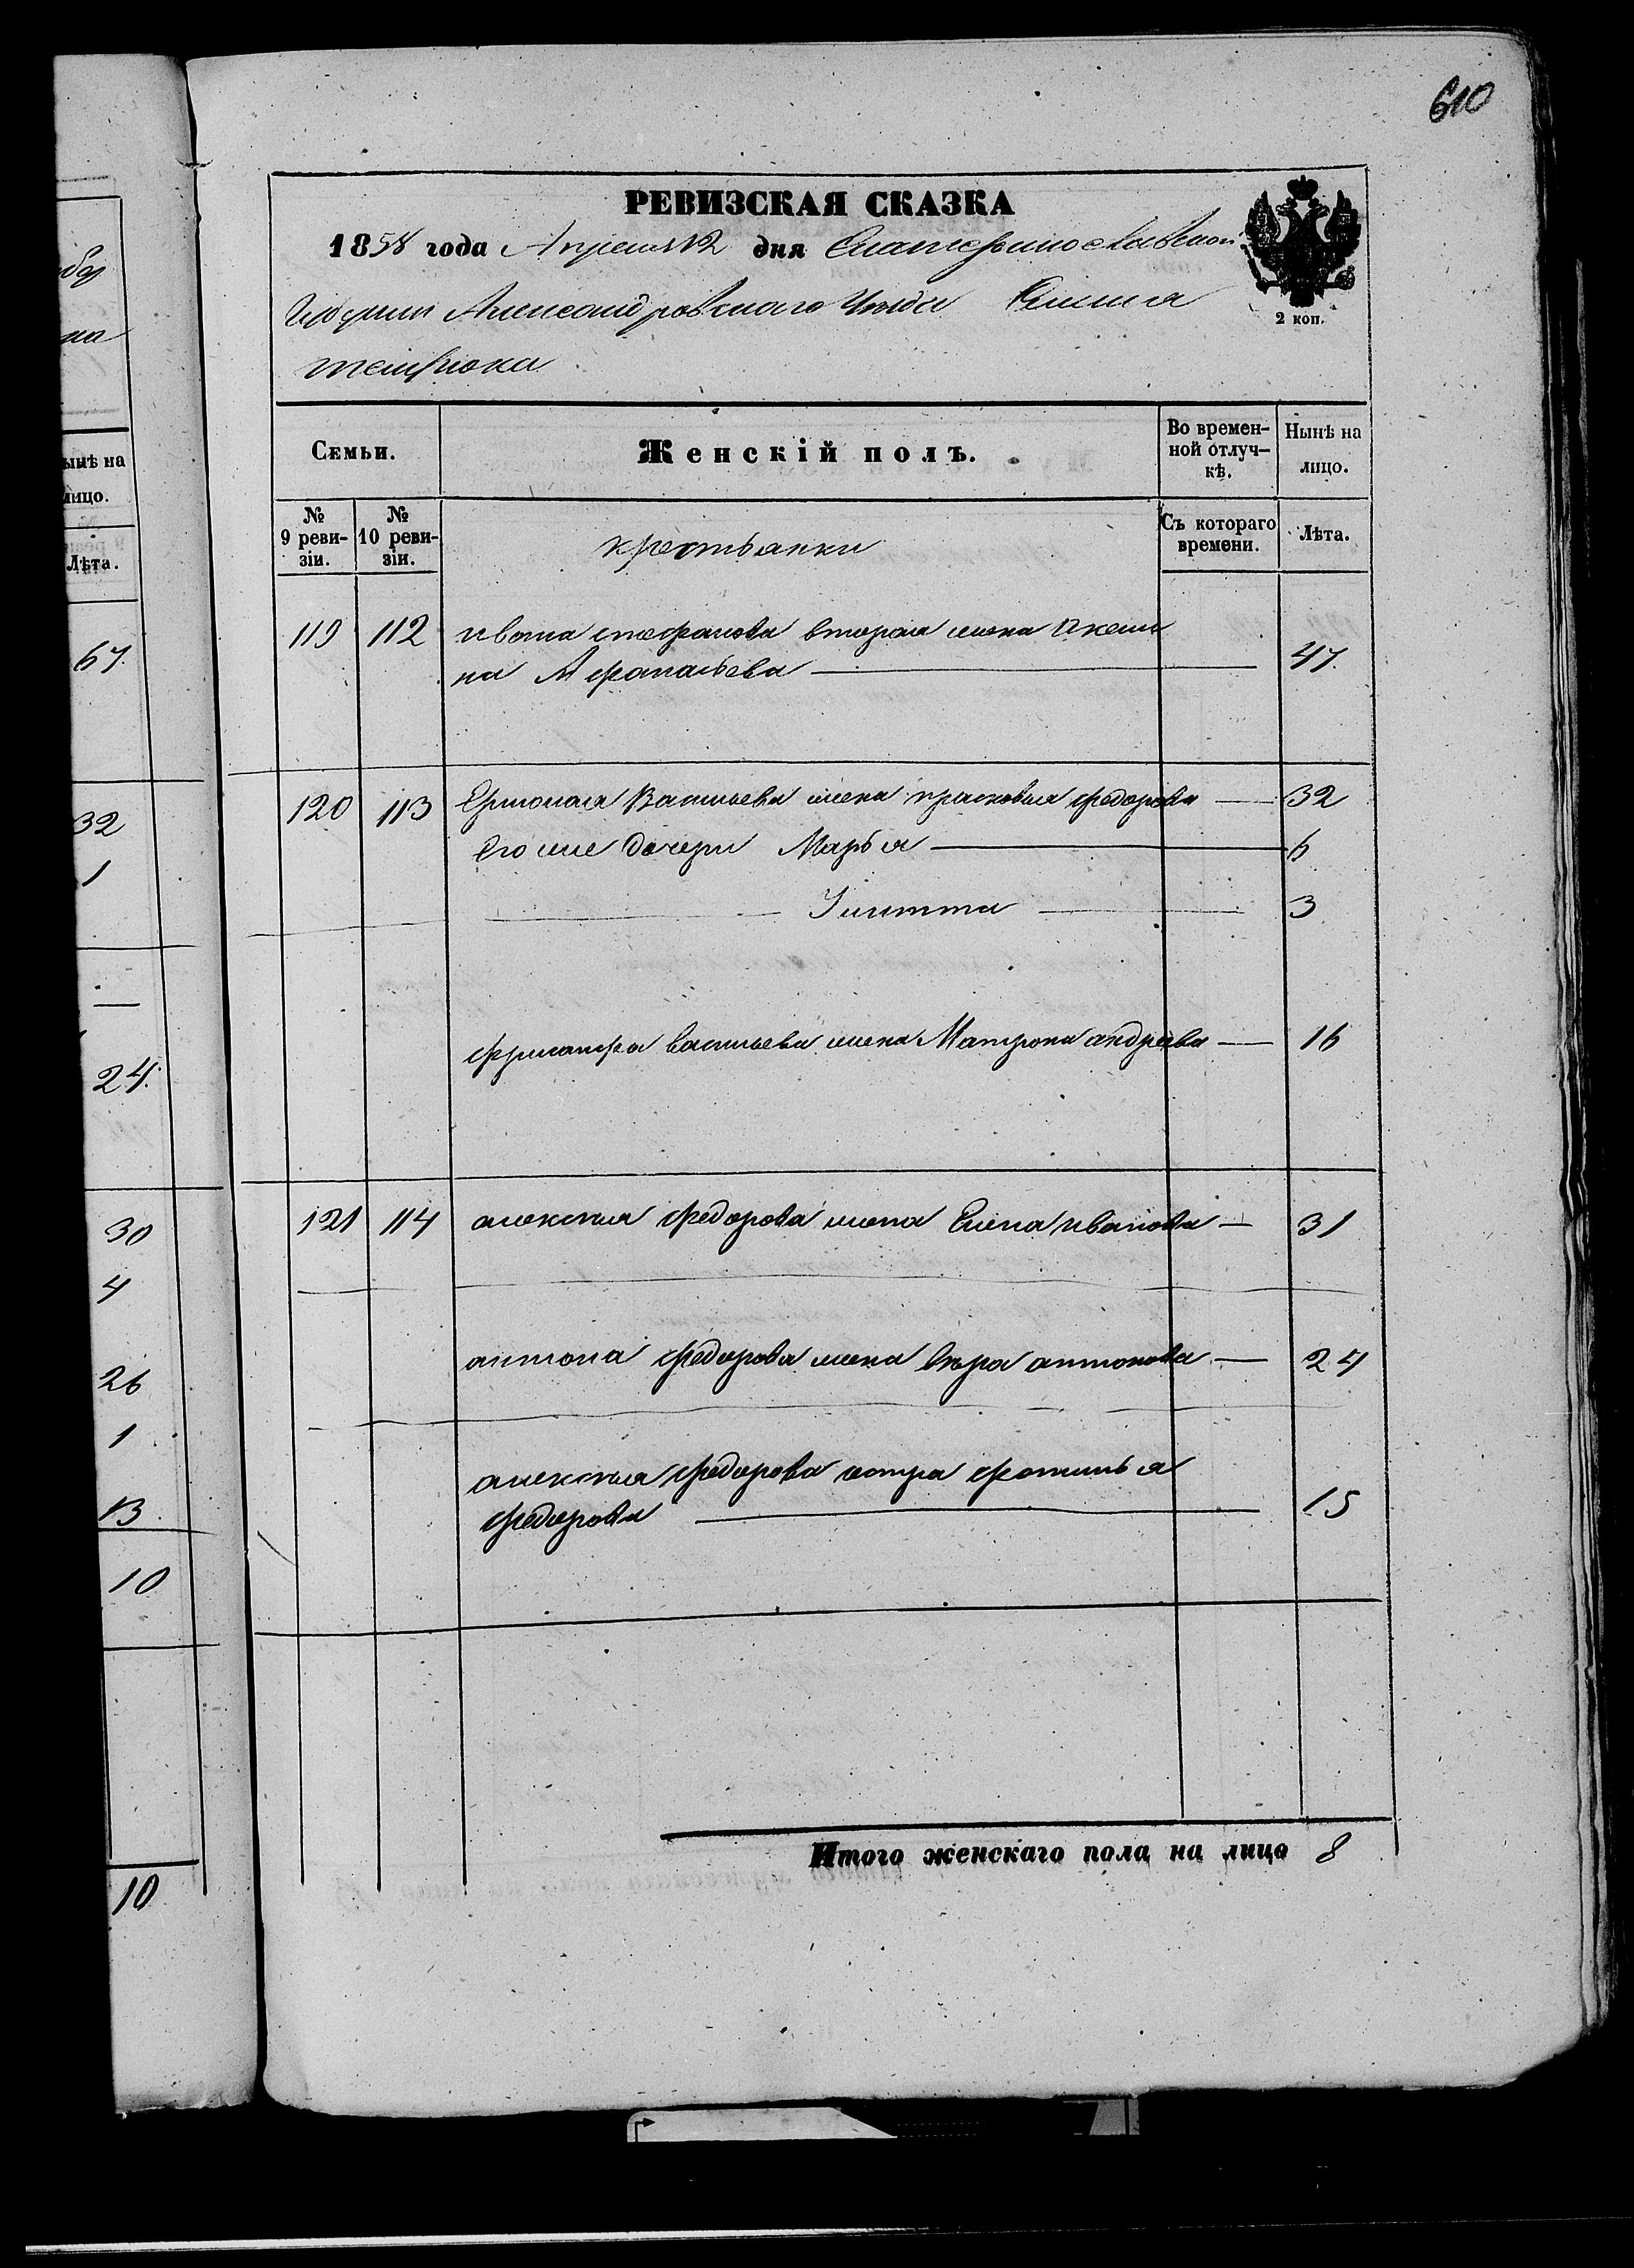 610
РЕВИЗСКАЯ СКАЗКА
1858 года Апреля 12 дня Екатеринославской
Губернии Александровскаго Уезда Селенія
темрюка
2 коп.
Семьи.
Женскій полъ.
Во времен-
ной отлуч-
кѣ.
Нынѣ на
лицо.
№
9 реви-
зіи.
№
10 реви-
зіи.
крестьянки
Съ котораго
времени.
Лѣта.
119 112 ивана стефанова вторая жена Акели
на Афанасьева 47.
120 113 Ермолая Васильева жена прасковья федорова 32
Его же дочери Марья 6
Улитта 3
васильева жена Матрона андреева 16
121 114 алексѣя федорова жена Елена иванова 31
антона федорова жена вѣра антонова 24
алексѣя федорова сестра фотинья
федорова 15
Итого женскаго пола на лицо 8
ынѣ на
лицо.
Лѣта.
67.
32
1
24.
30
4
26
1
13.
10
10